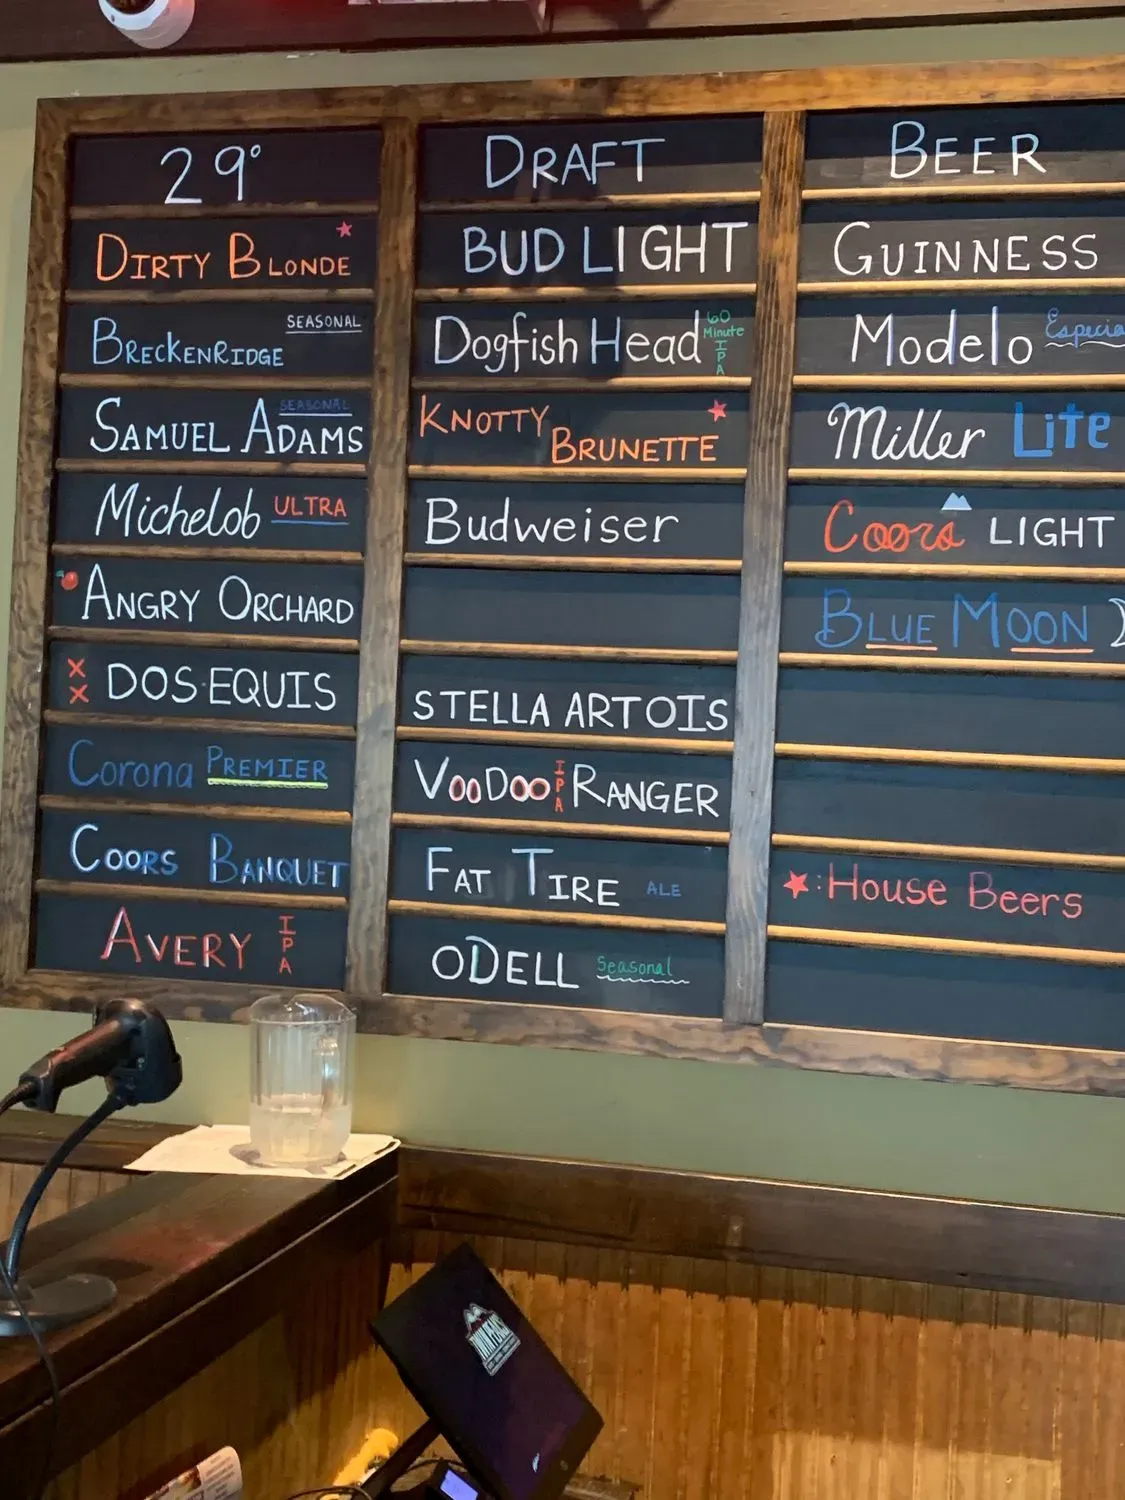 29° DRAFT BEER
DIRTY BLONDE
BRECKENRIDGE SEASONAL
SAMUEL ADAMS SEASONAL
Michelob ULTRA
ANGRY ORCHARD
XX DOS·EQUIS
Corona PREMIER
COORS BANQUET
AVERY IPA
BUD LIGHT
Dogfish Head 60 Minute IPA
KNOTTY BRUNETTE
Budweiser
STELLA ARTOIS
VOODOO IPA RANGER
FAT TIRE ALE
ODELL Seasonal
GUINNESS
Modelo Especia
Miller Lite
Coors LIGHT
BLUE MOON
★: House Beers
TWIN PEAKS